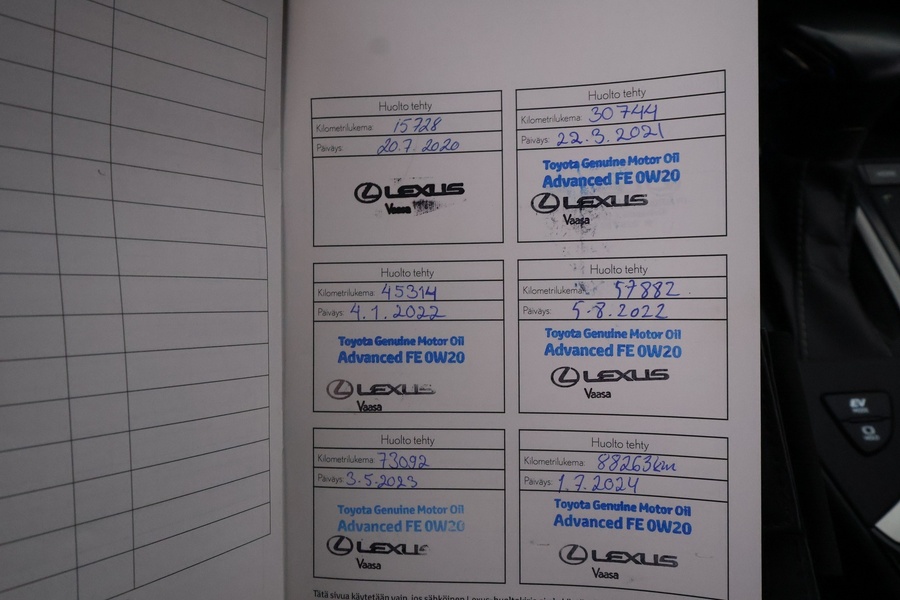 Huolto tehty
Kilometrilukema: 15728
Päiväys: 20.7.2020
LEXUS
Vaasa
Huolto tehty
Kilometrilukema: 30744
Päiväys: 22.3.2021
Toyota Genuine Motor Oil
Advanced FE 0W20
LEXUS
Vaasa
Huolto tehty
Kilometrilukema: 45314
Päiväys: 4.1.2022
Toyota Genuine Motor Oil
Advanced FE 0W20
LEXUS
Vaasa
Huolto tehty
Kilometrilukema: 57882
Päiväys: 5.8.2022
Toyota Genuine Motor Oil
Advanced FE 0W20
LEXUS
Vaasa
Huolto tehty
Kilometrilukema: 73092
Päiväys: 3.5.2023
Toyota Genuine Motor Oil
Advanced FE 0W20
LEXUS
Vaasa
Huolto tehty
Kilometrilukema: 88263km
Päiväys: 1.7.2024
Toyota Genuine Motor Oil
Advanced FE 0W20
LEXUS
Vaasa
Tätä sivua käytetään vain, jos sähköinen
EV